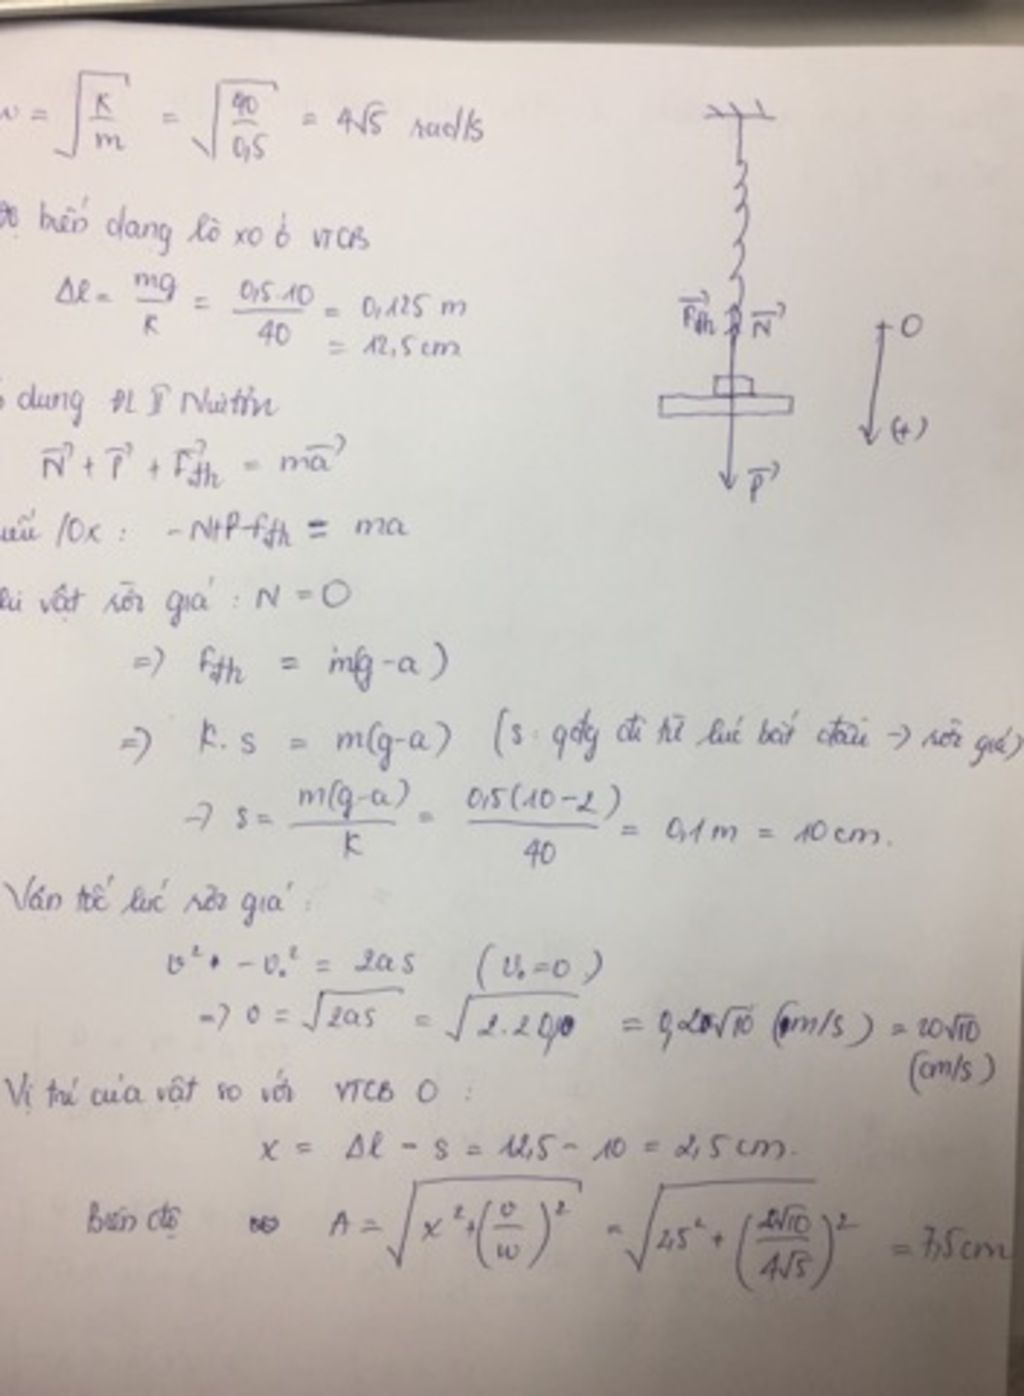 ω = √(k/m) = √(40/0,5) = 4√5 rad/s
Độ biến dạng lò xo ở VTCB
Δl = mg/k = 0,5.10/40 = 0,125 m
= 12,5 cm
F⃗đh N⃗
O
(+)
P⃗
dụng ĐL II Niutơn
N⃗ + P⃗ + F⃗đh = ma⃗
chiếu /Ox : -N+P-Fđh = ma
khi vật rời giá : N = 0
=> Fđh = m(g-a)
=> k.s = m(g-a) (s: qđg đi từ lúc bắt đầu -> rời giá)
-> s = m(g-a)/k = 0,5(10-2)/40 = 0,1m = 10cm.
Vận tốc lúc rời giá :
v² - v₀² = 2as (v₀ = 0)
=> v = √2as = √2.2.0,10 = 0,20√10 (m/s) = 20√10
(cm/s)
Vị trí của vật so với VTCB O :
x = Δl - s = 12,5 - 10 = 2,5 cm.
Biên độ A = √(x² + (v/ω)²) = √(2,5² + (20√10/4√5)²) = 7,5cm